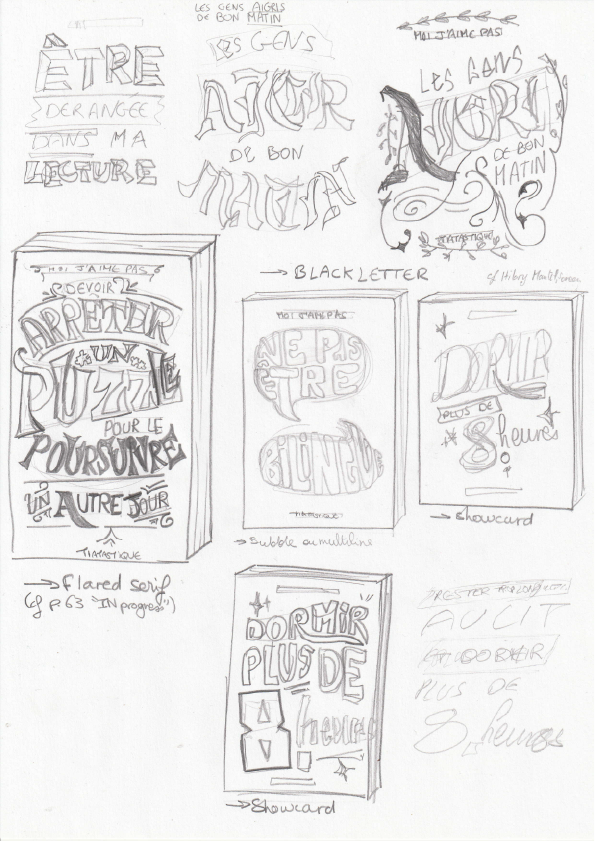 ÊTRE
DERANGEE
DANS MA
LECTURE
LES GENS AIGRIS
DE BON MATIN
LES GENS
AIGRI
DE BON
MATIN
MOI J'AIME PAS
LES GENS
AIGRI
DE BON
MATIN
TIATASTIQUE
MOI J'AIME PAS
DEVOIR
ARRÊTER
UN
PUZZLE
POUR LE
POURSUIVRE
UN AUTRE JOUR
TIATASTIQUE
→ flared serif
(cf p.63 "IN progress")
→ BLACKLETTER
MOI J'AIME PAS
NE PAS
ÊTRE
BILINGUE
TIATASTIQUE
cf
DORMIR
PLUS DE
8 heures
→ Showcard
DORMIR
PLUS DE
8 heures
→ Showcard
AU LIT
PLUS DE
8 heures